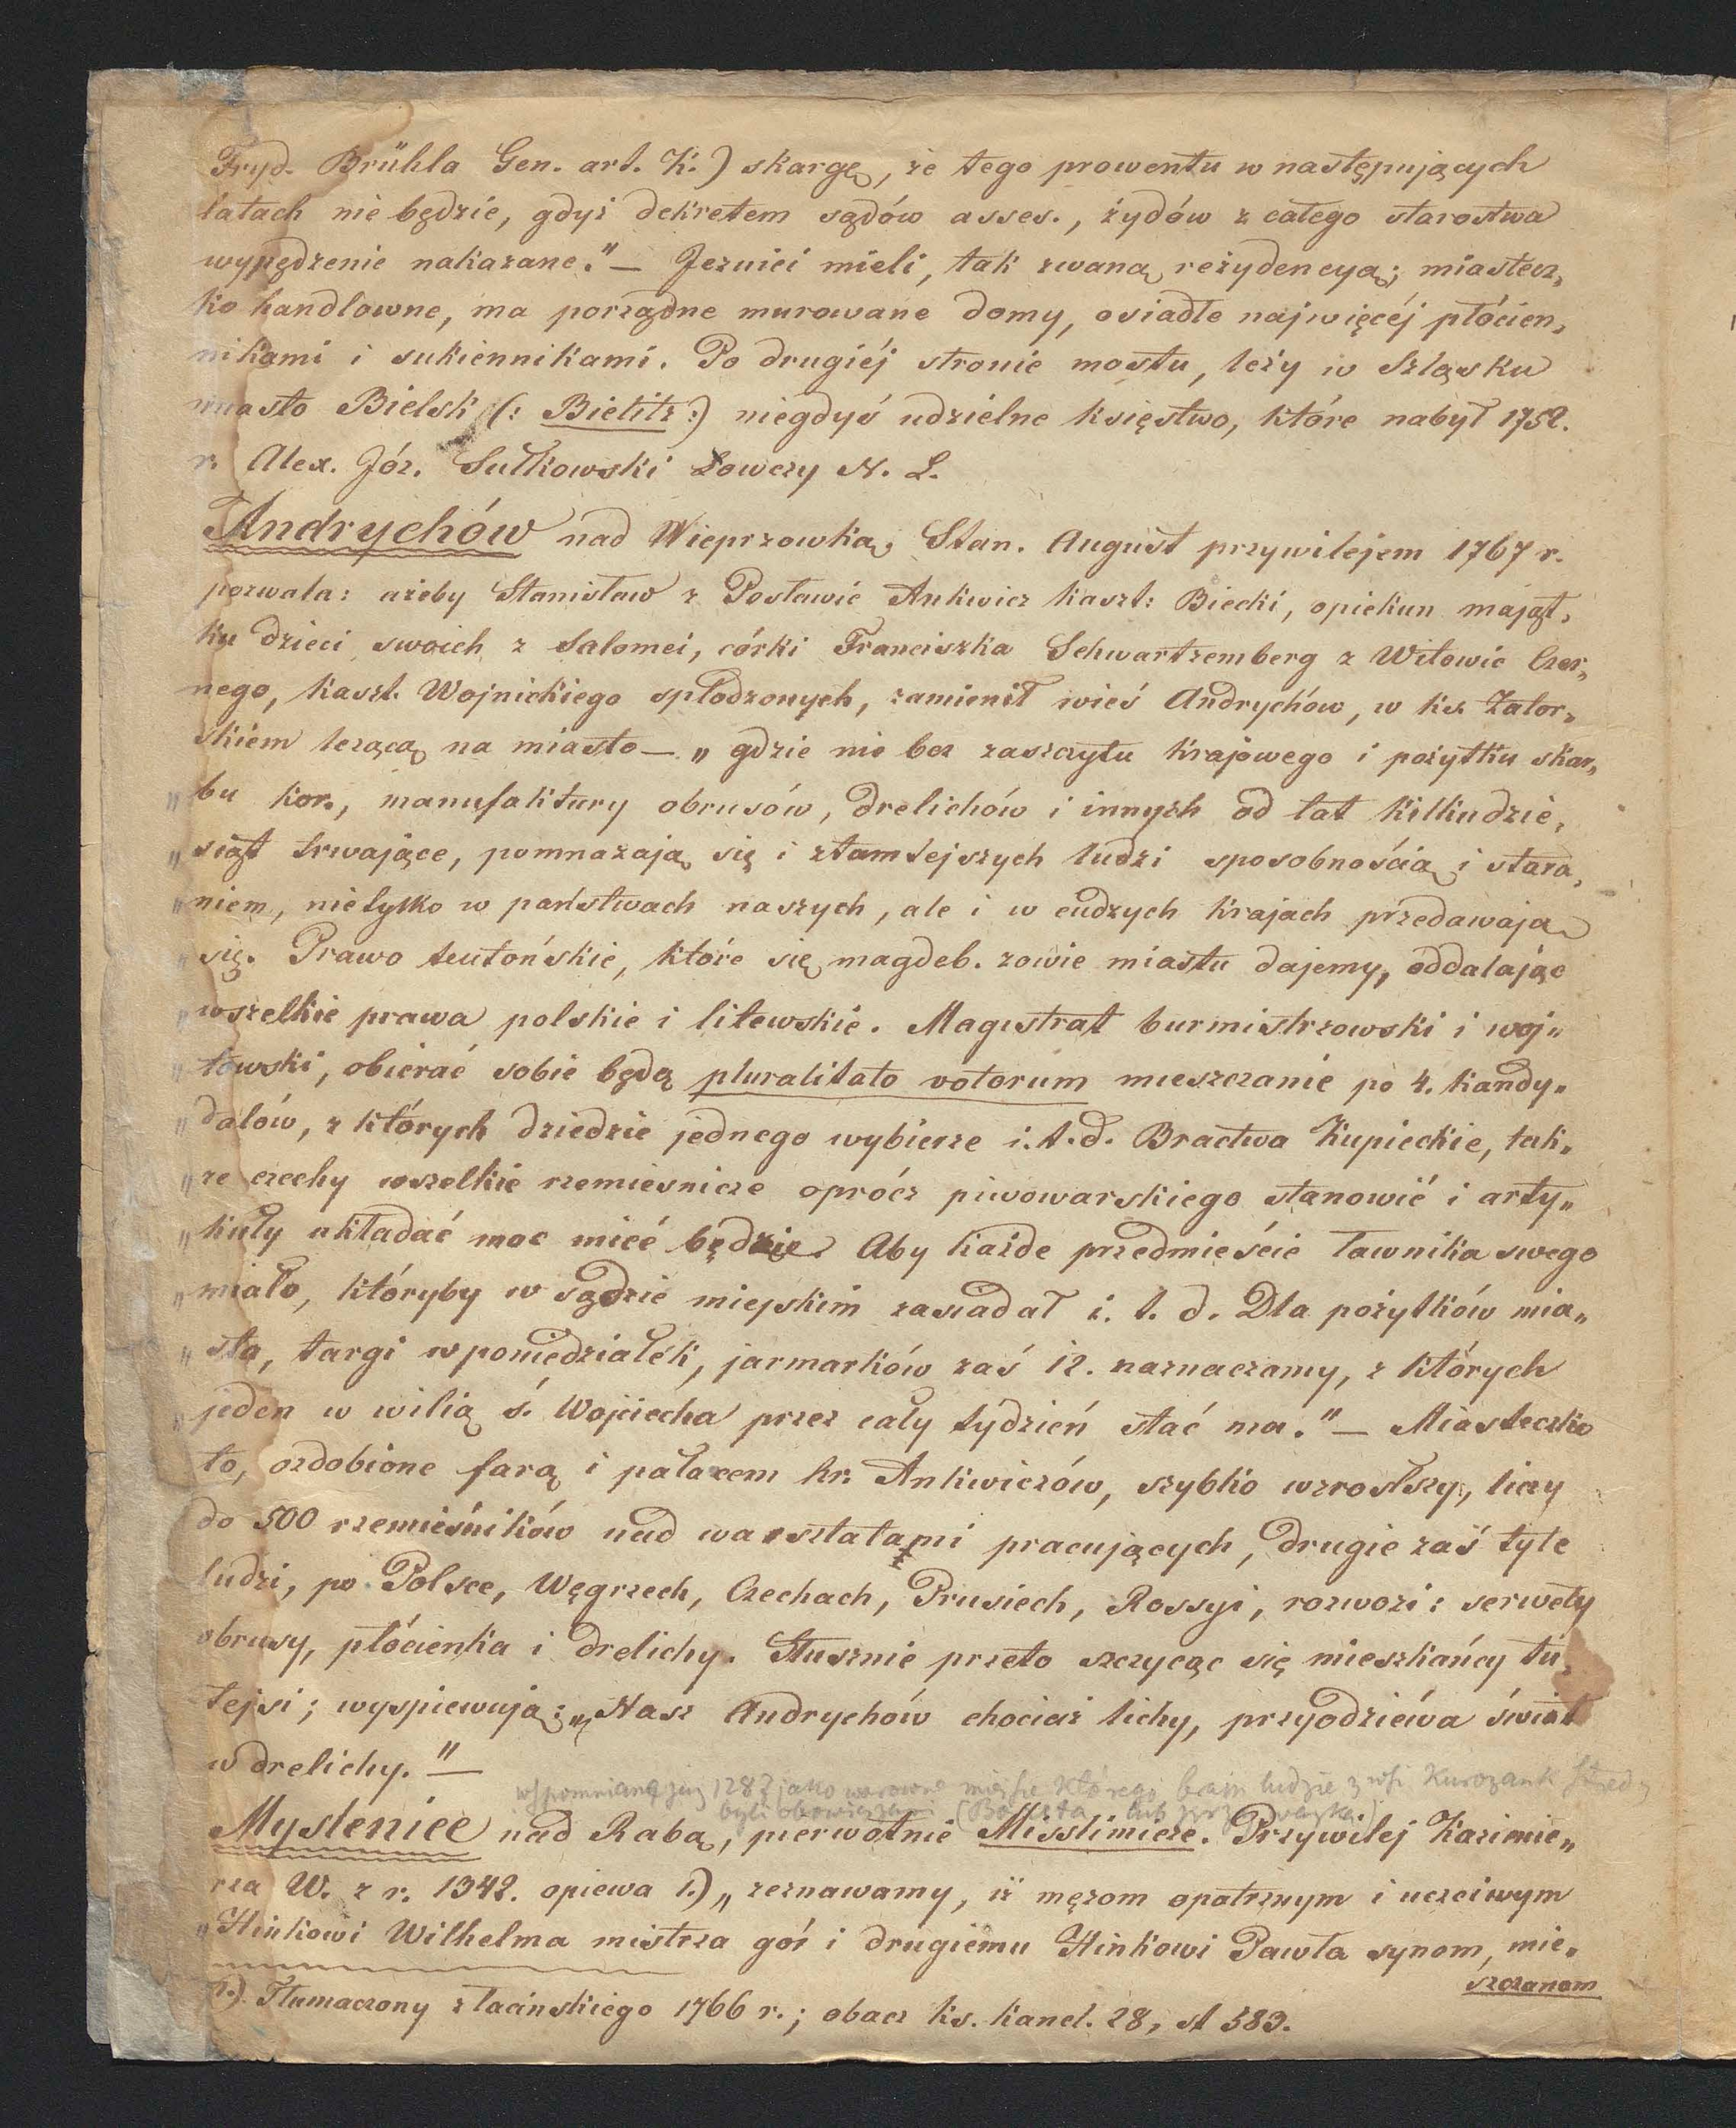 Fryd. Brühla Gen. art. K.) skargę, że tego prowentu w następujących
latach nie będzie, gdyż dekretem sądów asses., żydów z całego starostwa
wypędzenie nakazane." — Jezuici mieli, tak zwaną reżydencyą; miastecz„
ko handlowne, ma porządne murowane domy, osiadłe najwięcéj płócien„
nikami i sukiennikami. Po drugiéj stronie mostu, leży w Szląsku
miasto Bielsk (: Bielitz :) niegdyś udzielne księstwo, które nabył 1752.
r. Alex. Józ. Sułkowski Łowczy N. L.
Andrychów nad Wieprzowką; Stan. August przywilejem 1767 r.
pozwala: ażeby Stanisław z Posławic Ankwicz kaszt: Biecki, opiekun mająt„
ku dzieci swoich z Salomei, córki Franciszka Schwartzemberg z Witowic Czer„
nego, kaszt. Wojnickiego spłodzonych, zamienił wieś Andrychów, w ks. Zator„
skiém leżącą na miasto — „ gdzie nie bez zaszczytu krajowego i pożytku skar„
„ bu kor., manufaktury obrusów, drelichów i innych od lat kilkudzie„
„ siąt trwające, pomnażają się i ztamtejszych ludzi sposobnością i stara„
„ niem, nietylko w państwach naszych, ale i w cudzych krajach przedawają
„ się. Prawo teutońskie, które się magdeb. zowie miastu dajemy, oddalając
„ wszelkie prawa polskie i litewskie. Magistrat burmistrzowski i woj„
„ towski, obiérać sobie będą pluralitato votorum mieszczanie po 4. kandy„
„ datów, z których dziedzic jednego wybierze i.t.d. Bractwa Kupieckie, tak„
„ że cechy wszelkie rzemieśnicze oprócz piwowarskiego stanowić i arty„
„ kuły układać moc mieć będzie. Aby każde przedmieście ławnika swego
„ miało, któryby w sądzie miejskim zasiadał i. t. d. Dla pożytków mia„
„ sta, targi w poniedziałek, jarmarków zaś 12. naznaczamy, z których
„ jeden w wilią ś. Wojciecha przez cały tydzień stać ma." — Miasteczko
to, ozdobione farą i pałacem hr. Ankwiczów, szybko wzrosłszy, liczy
do 500 rzemieśników nad warsztatami pracujących, drugie zaś tyle
ludzi, po Polsce, Węgrzech, Czechach, Prusiech, Rossyi, rozwozi: serwety
obrusy, płócienka i drelichy. Słusznie przeto szczycąc się mieszkańcy tu„
tejsi; wyspiewują: „Nasz Andrychów chociaż lichy, przyodziéwa świat
w drelichy." —
wspomniane już 1287 jako warowne miejsce którego ludzie z wsi Kurozank
byli obowiązani
Myslenice nad Rabą, pierwotnie Misslimicze. Przywilej Kazimie„
rza W. z r. 1342. opiewa 1.) „ zeznawamy, iż mężom opatrznym i uczciwym
„ Hinkowi Wilhelma mistrza gór i drugiému Hinkowi Pawła synom, mie„
szczanom
1.) Tłumaczony z łacińskiego 1766 r.; obacz ks. kancl. 28, st 583.